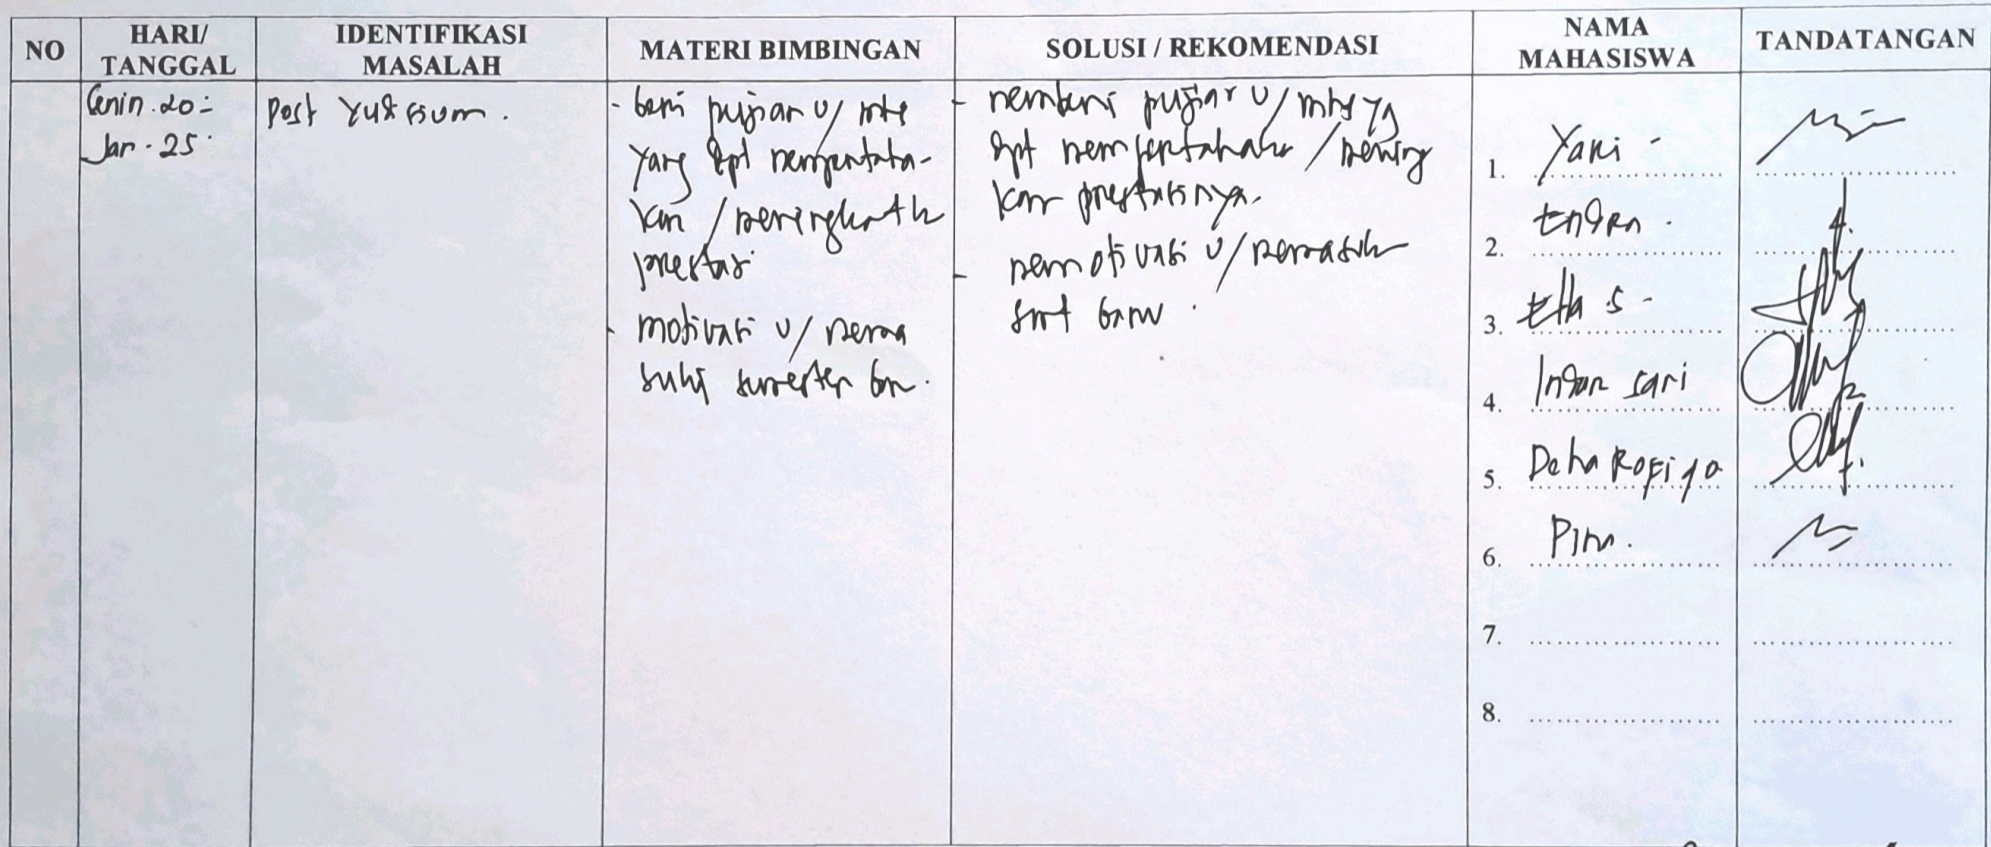 NO
HARI/
TANGGAL
IDENTIFIKASI
MASALAH
MATERI BIMBINGAN
SOLUSI / REKOMENDASI
NAMA
MAHASISWA
TANDATANGAN
Senin. 20 -
Jan. 25
Post Yudisium.
- beri pujian u/ mhs
yang dpt mempertaha-
kan / meningkatk
prestasi
- motivasi u/ mema
suki semester br.
- memberi pujian u/ mhs yg
dpt mempertahakn / mening
kan prestasinya.
- memotivasi u/ memasuk
smt baru.
1. Yani -
2. Endan.
3. Ella S -
4. Indan sari
5. Deha Rofiqo
6.
7.
8.